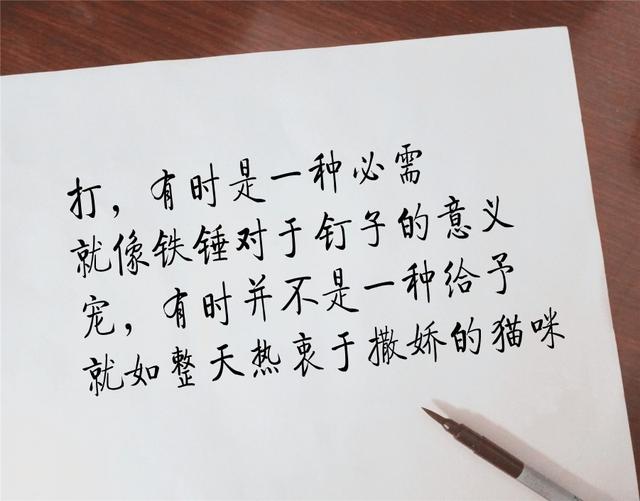 打，有时是一种必需
就像铁锤对于钉子的意义
宠，有时并不是一种给予
就如整天热衷于撒娇的猫咪